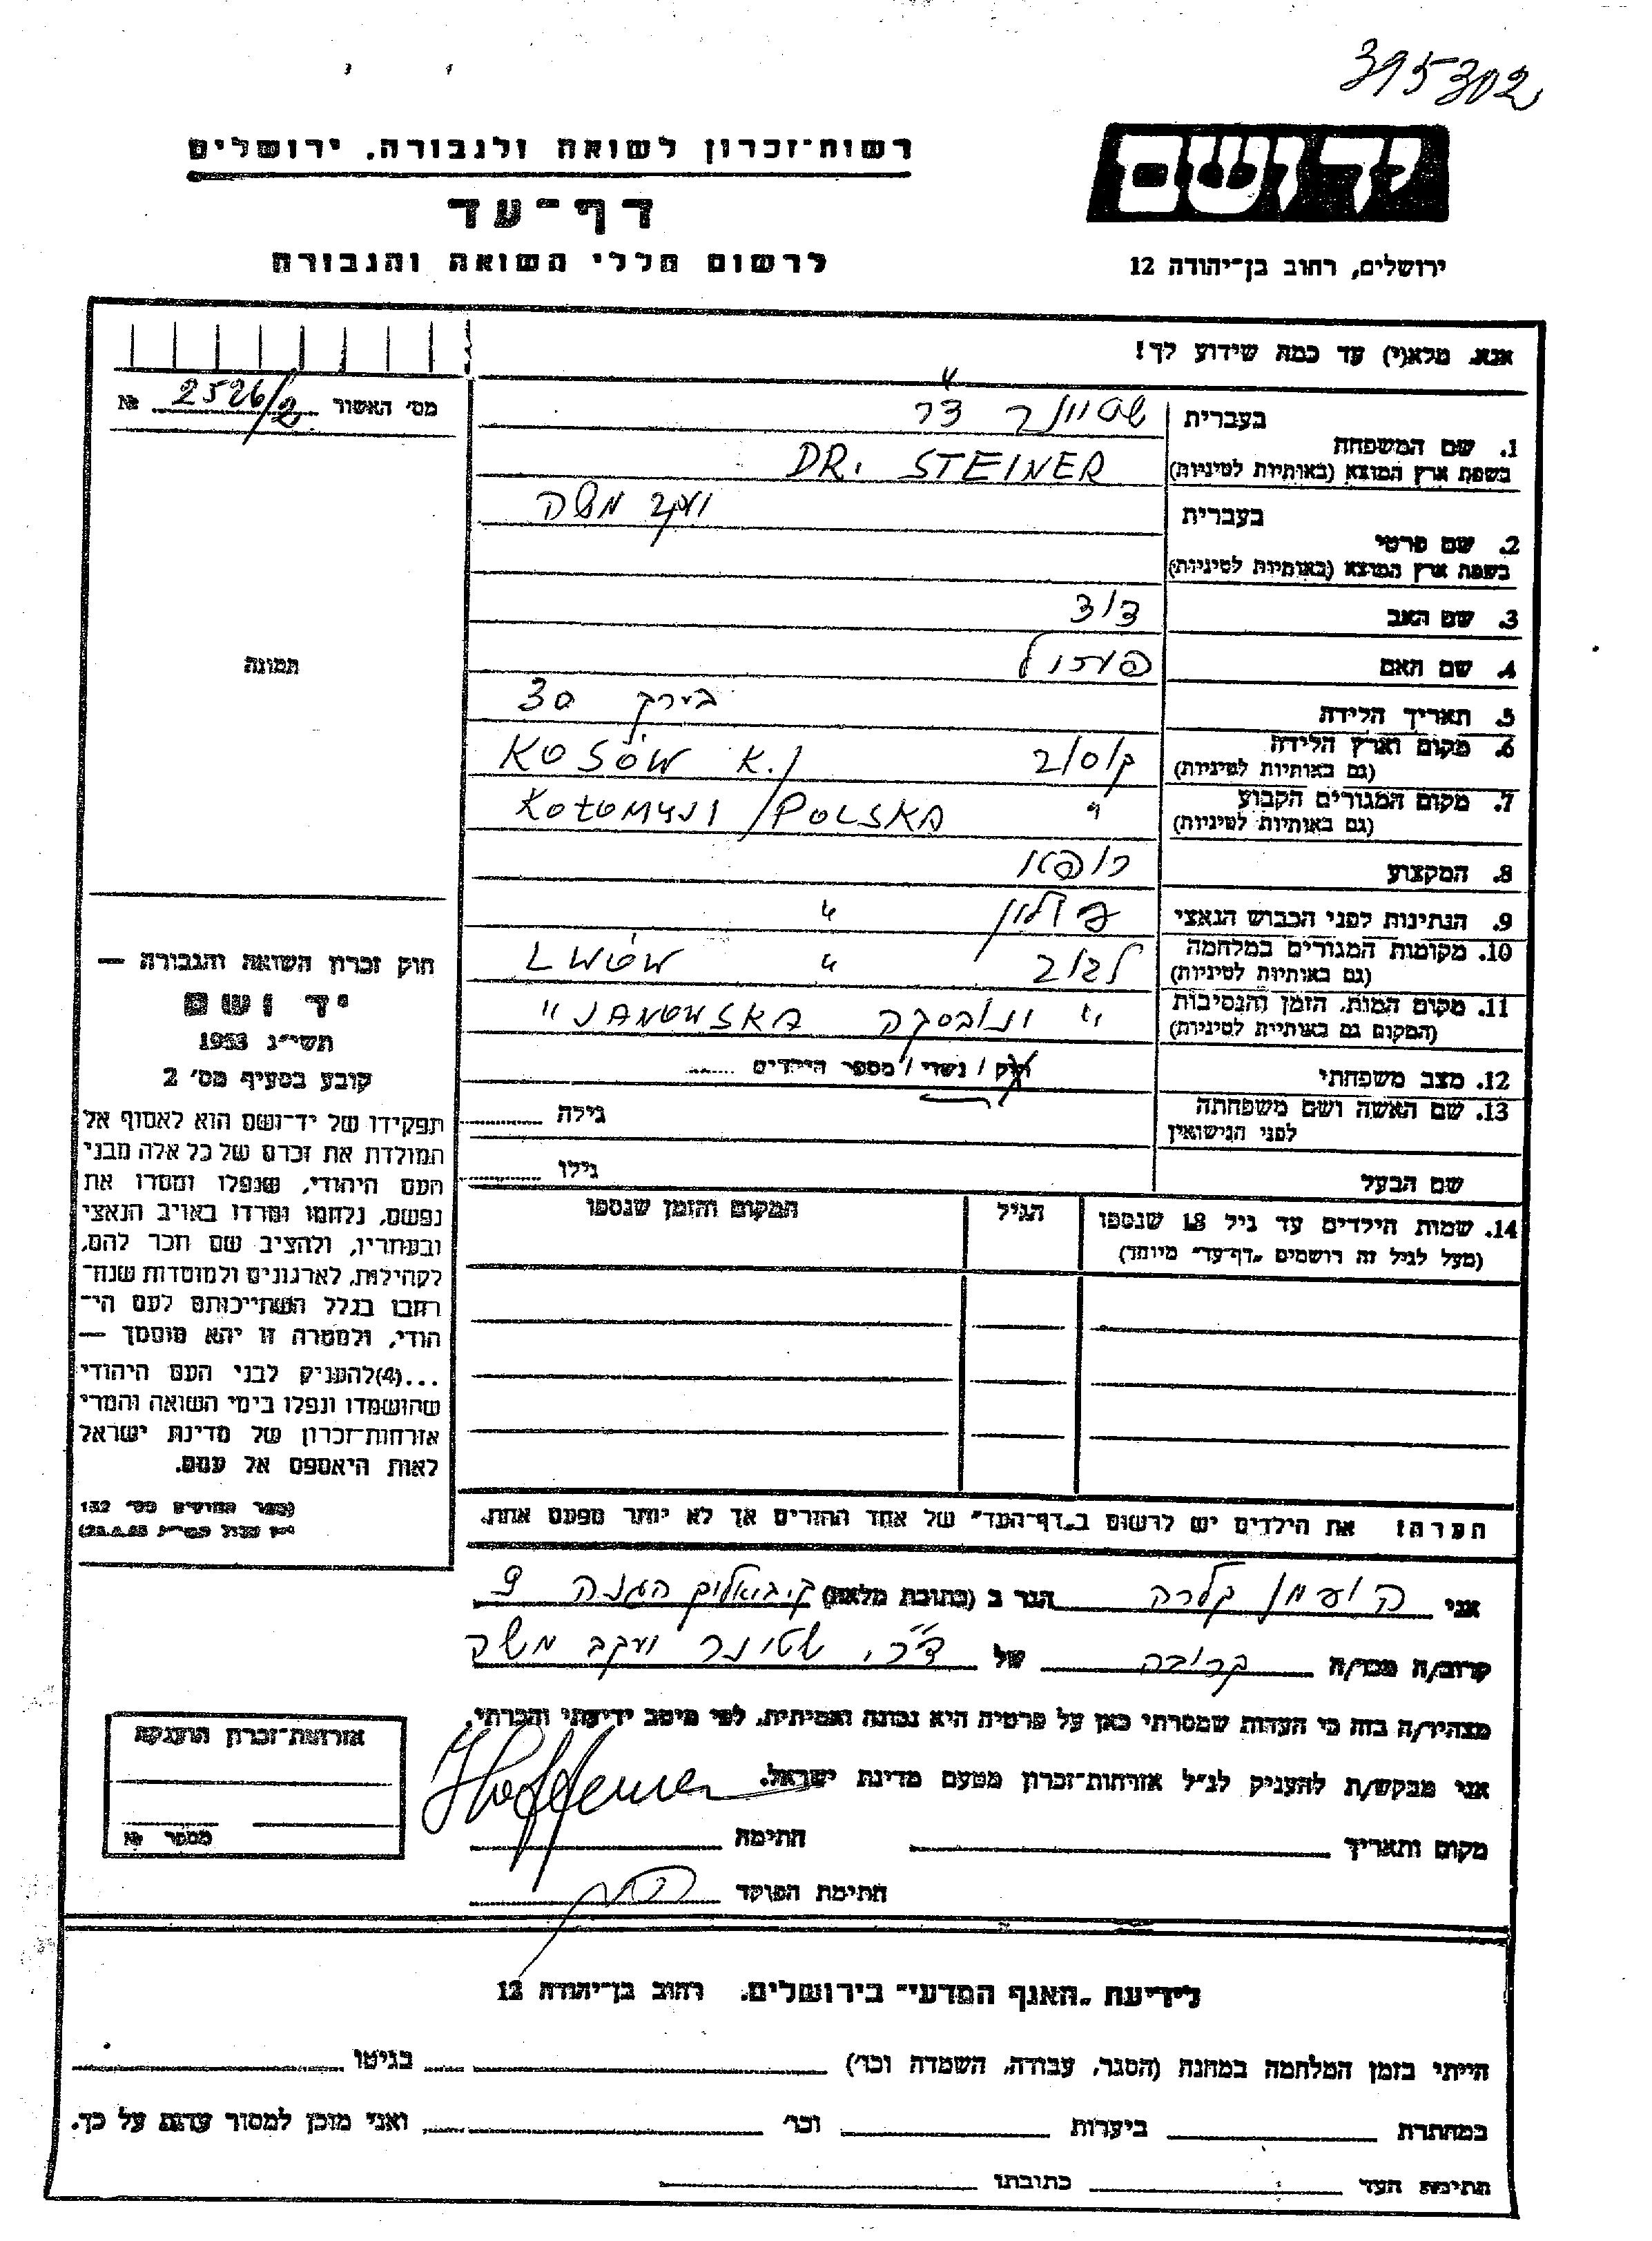 395302
רשות־זכרון לשואה ולגבורה, ירושלים
יד ושם
דף־עד
לרשום חללי השואה והגבורה
ירושלים, רחוב בן־יהודה 12
אנא, מלא(י) עד כמה שידוע לך!
מס' האשור 2526/2 №
1. שם המשפחה
בעברית שטיינר ד"ר
בשפת ארץ המוצא (באותיות לטיניות) DR. STEINER
2. שם פרטי
בעברית יעקב משה
בשפת ארץ המוצא (באותיות לטיניות)
3. שם האב דוד
4. שם האם
5. תאריך הלידה בערך 30
6. מקום וארץ הלידה (גם באותיות לטיניות) קוסוב KOSÓW K./
7. מקום המגורים הקבוע (גם באותיות לטיניות) " KOŁOMYJI / POLSKA
8. המקצוע רופא
9. הנתינות לפני הכבוש הנאצי פולין "
10. מקומות המגורים במלחמה (גם באותיות לטיניות) לבוב " LWÓW
11. מקום המות, הזמן והנסיבות (המקום גם באותיות לטיניות) "ינובסקה JANOWSKA"
12. מצב משפחתי רוק / נשוי / מספר הילדים
13. שם האשה ושם משפחתה לפני הנישואין גילה
שם הבעל גילו
14. שמות הילדים עד גיל 18 שנספו (מעל לגיל זה רושמים "דף־עד" מיוחד)
הגיל
המקום והזמן שנספו
הערה! את הילדים יש לרשום ב"דף־העד" של אחד ההורים אך לא יותר מפעם אחת.
תמונה
חוק זכרון השואה והגבורה —
יד ושם
תשי"ג 1953
קובע בסעיף מס' 2
תפקידו של יד־ושם הוא לאסוף אל
המולדת את זכרם של כל אלה מבני
העם היהודי, שנפלו ומסרו את
נפשם, נלחמו ומרדו באויב הנאצי
ובעוזריו, ולהציב שם וזכר להם,
לקהילות, לארגונים ולמוסדות שנח־
רבו בגלל השתייכותם לעם הי־
הודי, ולמטרה זו יהא מוסמך —
...(4)להעניק לבני העם היהודי
שהושמדו ונפלו בימי השואה והמרי
אזרחות־זכרון של מדינת ישראל
לאות היאספם אל עמם.
(ספר החוקים מס' 132
אני הופמן קלרה הגר ב (כתובת מלאה) ק. ביאליק ההגנה 9
קרוב/ה מכר/ה קרובה של ד"ר. שטינר יעקב משה
מצהיר/ה בזה כי העדות שמסרתי כאן על פרטיה היא נכונה ואמיתית, לפי מיטב ידיעתי והכרתי.
אני מבקש/ת להעניק לנ"ל אזרחות־זכרון מטעם מדינת ישראל.
מקום ותאריך חתימה
חתימת הפוקד
אזרחות־זכרון הוענקה
מספר №
לידיעת "האגף המדעי" בירושלים, רחוב בן־יהודה 12
הייתי בזמן המלחמה במחנה (הסגר, עבודה, השמדה וכו') בגיטו
במחתרת ביערות וכו' ואני מוכן למסור עדות על כך.
חתימת העד כתובתו